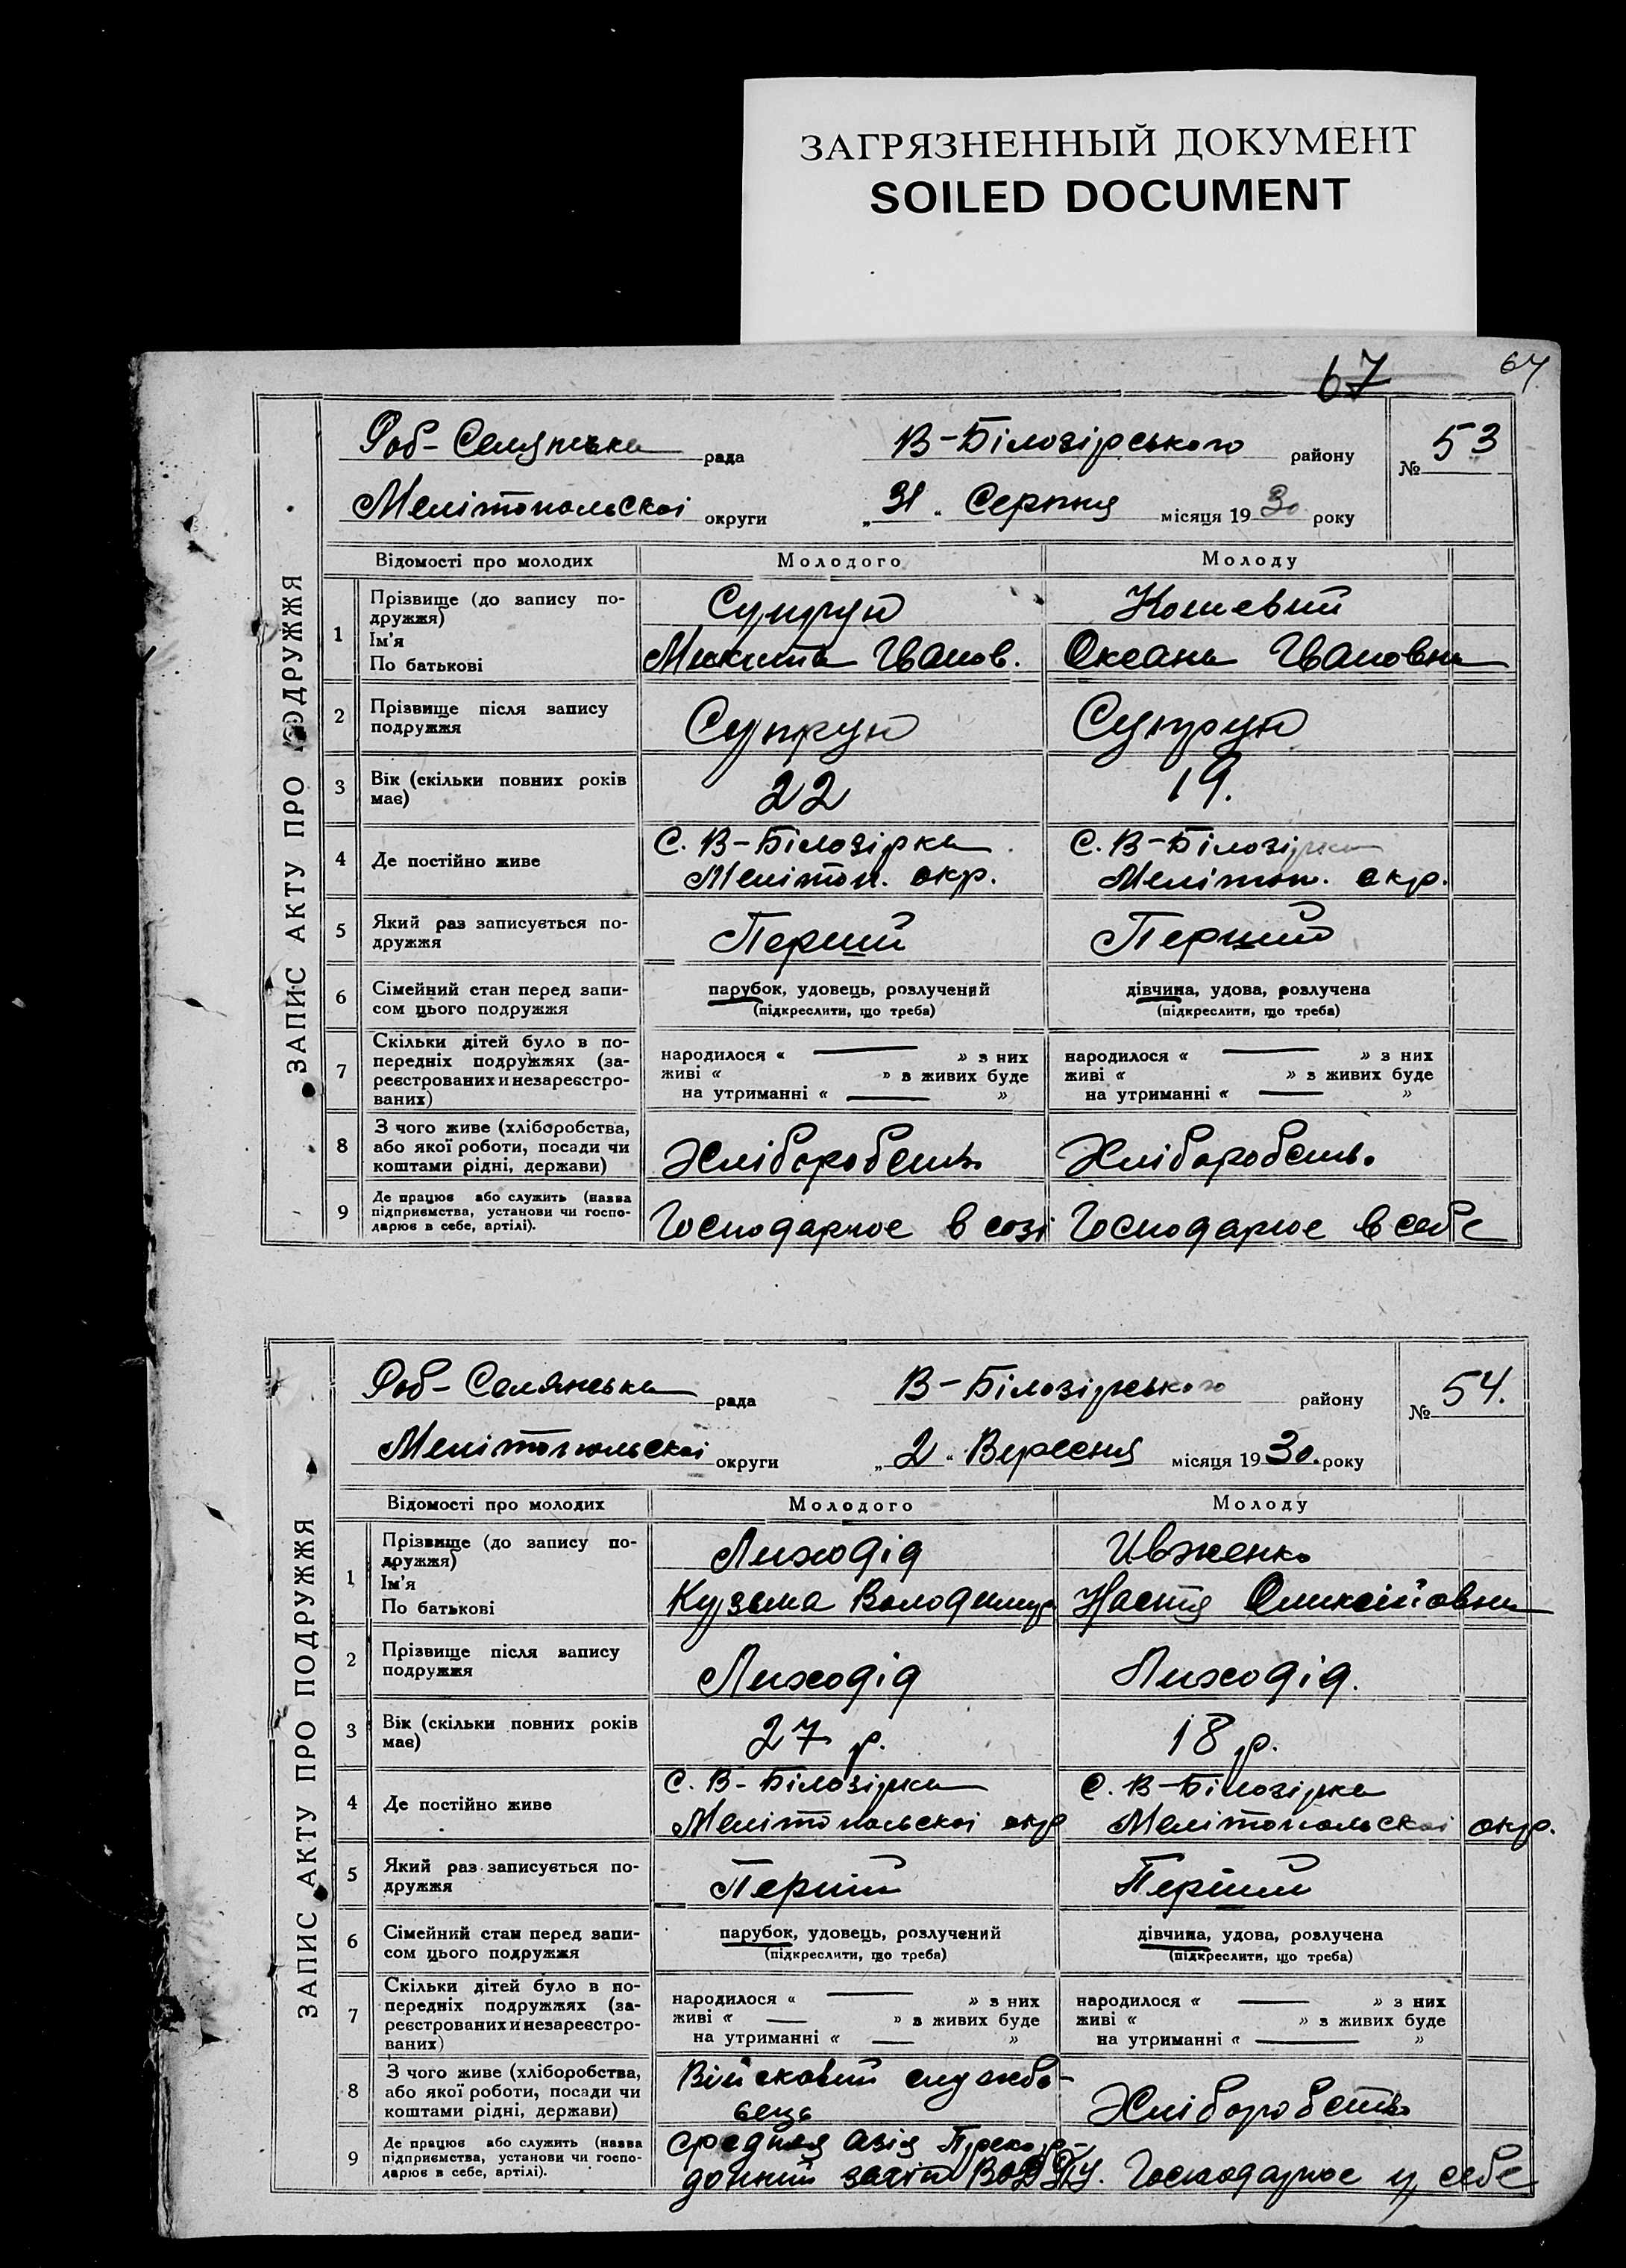 ЗАГРЯЗНЕННЫЙ ДОКУМЕНТ
SOILED DOCUMENT
67
ЗАПИС АКТУ ПРО ПОДРУЖЖЯ
Роб-Селянська рада В-Білозірського району № 53
Мелітопольскоі округи „31“ Серпня місяця 1930 року
Відомості про молодих Молодого Молоду
1 Прізвище (до запису по-
дружжя) Супрун Кошевий
Ім'я
По батькові Микита Іванов. Оксана Івановна
2 Прізвище після запису
подружжя Супрун Супрун
3 Вік (скільки повних років
має) 22 19.
4 Де постійно живе С. В-Білозірка С. В-Білозірка
Мелітоп. окр. Мелітоп. окр.
5 Який раз записується по-
дружжя Перший Перший
6 Сімейний стан перед запи-
сом цього подружжя
парубок, удовець, розлучений дівчина, удова, розлучена
(підкреслити, що треба) (підкреслити, що треба)
7 Скільки дітей було в по-
передніх подружжях (за-
реєстрованих и незареєстро-
ваних)
народилося « — » з них народилося « — » з них
живі « » з живих буде живі « » з живих буде
на утриманні « — » на утриманні « — »
8 З чого живе (хліборобства,
або якої роботи, посади чи
коштами рідні, держави) Хліборобств. Хліборобств.
9 Де працює або служить (назва
підприємства, установи чи госпо-
дарює в себе, артілі). Господарює в созі Господарює в себе
ЗАПИС АКТУ ПРО ПОДРУЖЖЯ
Роб-Селянська рада В-Білозірського району № 54.
Мелітопольскоі округи „2“ Вересня місяця 1930. року
Відомості про молодих Молодого Молоду
1 Прізвище (до запису по-
дружжя) Лиходід Ивженко
Ім'я
По батькові Кузьма Володимир Настя Оликсійовна
2 Прізвище після запису
подружжя Лиходід Лиходід.
3 Вік (скільки повних років
має) 27 р. 18 р.
4 Де постійно живе С. В-Білозірка С. В-Білозірка
Мелітопольскоі окр Мелітопольскоі окр.
5 Який раз записується по-
дружжя Перший Перший
6 Сімейний стан перед запи-
сом цього подружжя
парубок, удовець, розлучений дівчина, удова, розлучена
(підкреслити, що треба) (підкреслити, що треба)
7 Скільки дітей було в по-
передніх подружжях (за-
реєстрованих и незареєстро-
ваних)
народилося « — » з них народилося « — » з них
живі « — » з живих буде живі « » з живих буде
на утриманні « — » на утриманні « — »
8 З чого живе (хліборобства,
або якої роботи, посади чи
коштами рідні, держави) Війсковий службо-
вець Хліборобств
9 Де працює або служить (назва
підприємства, установи чи госпо-
дарює в себе, артілі). Средняя Азія
Господарює у себе